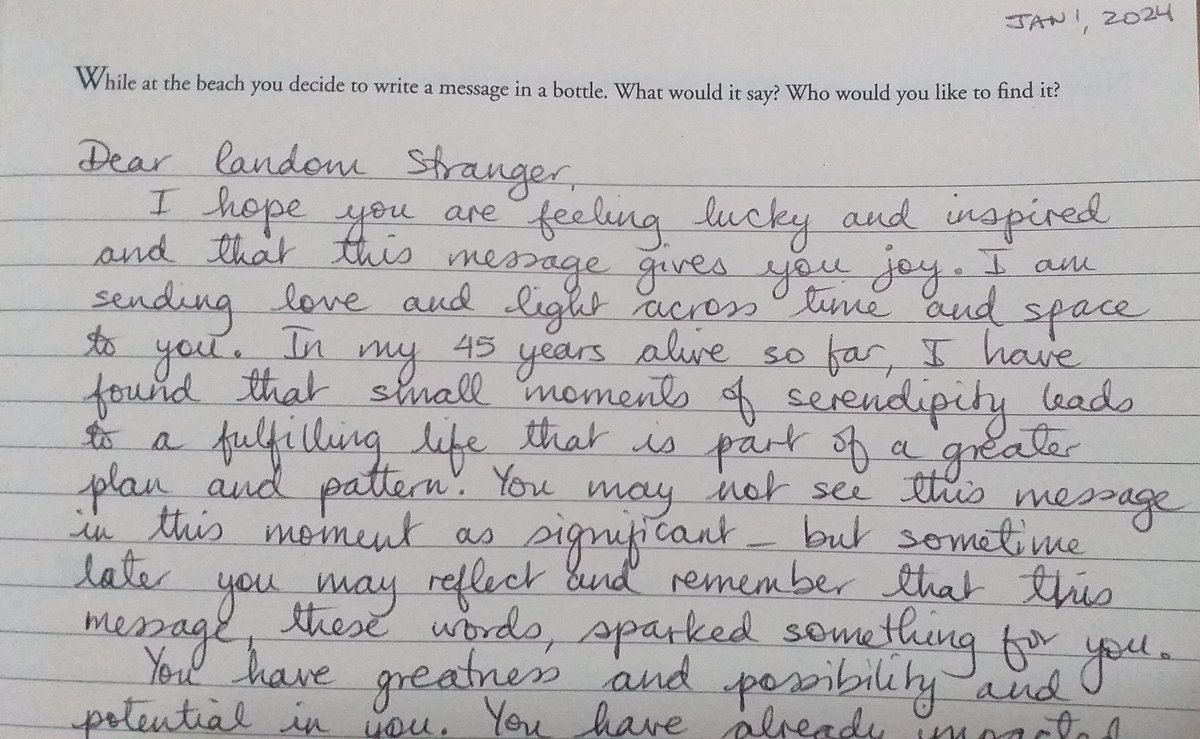 JAN 1, 2024
While at the beach you decide to write a message in a bottle. What would it say? Who would you like to find it?
Dear Random Stranger,
I hope you are feeling lucky and inspired
and that this message gives you joy. I am
sending love and light across time and space
to you. In my 45 years alive so far, I have
found that small moments of serendipity leads
to a fulfilling life that is part of a greater
plan and pattern. You may not see this message
in this moment as significant – but sometime
later you may reflect and remember that this
message, these words, sparked something for you.
You have greatness and possibility and
potential in you. You have already impacted